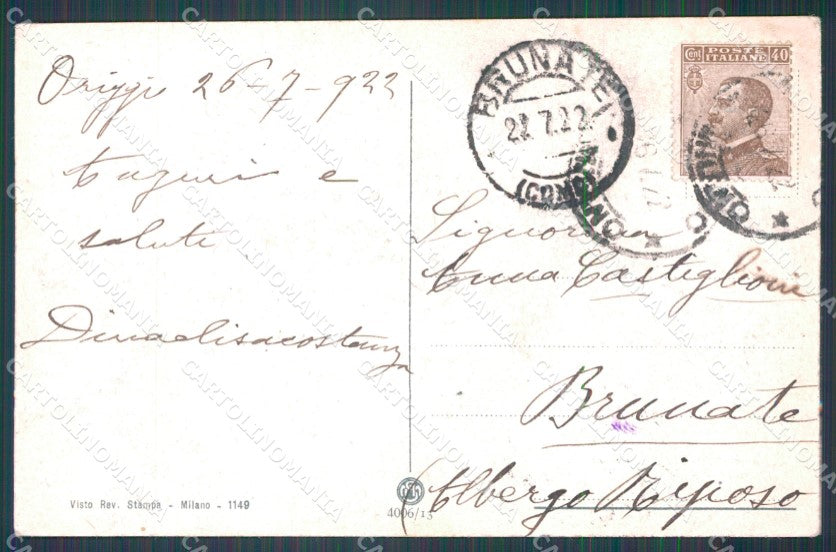 Origgio 26-7-922
Auguri e
saluti
Dina elisa costanza
Visto Rev. Stampa - Milano - 1149
4006/13
BRUNATE
27.7.22
(COMO)
Cent 40
POSTE
ITALIANE
Signorina
Anna Castiglioni
Brunate
Albergo Riposo
CARTOLINOMANIA